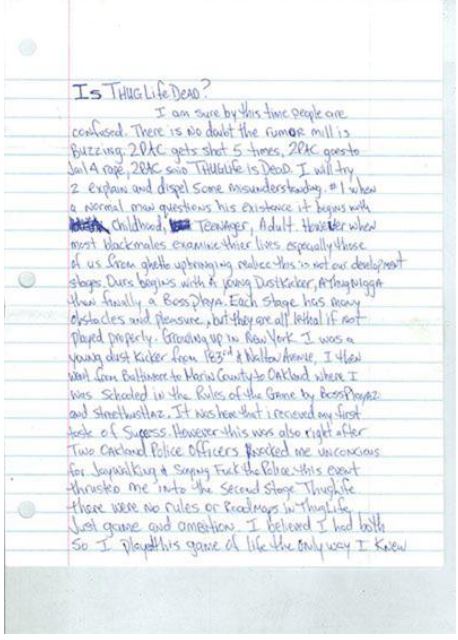 Is THUG Life DeaD?
I am sure by this time people are
confused. There is no doubt the rumor mill is
Buzzing. 2PAC gets shot 5 times, 2PAC goes to
Jail 4 rape, 2PAC said THUGLife is DeaD. I will try
2 explain and dispel some misunderstanding. #1 when
a normal man questions his existence it begins with
Childhood, Teenager, Adult. However when
most blackmales examine thier lives especially those
of us from ghetto upbringing realize this is not our development
stages. Ours begins with A young DustKicker, A ThugNigga
then finally a Boss Playa. Each stage has many
obstacles and pleasure, but they are all lethal if not
played property. Growing up in New York I was a
young dust Kicker from 183rd & Walton Avenue, I then
went from Baltimore to Marin County to OAkland where I
was schooled in the Rules of the Game by BossPlayaz
and streethustlaz. It was here that i recieved my first
taste of Sucess. However this was also right after
Two OAkland Police Officers knocked me unconcious
for JayWalking & Saying Fuck the Police. this event
thrusted me into the Second Stage Thuglife
there were no rules or RoadMaps in ThugLife
Just game and ambition. I believed I had both
So I played this game of life the only way I Knew